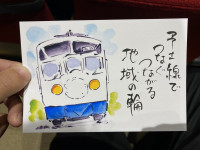 予土線で
つなぐ
つながる
地域の輪